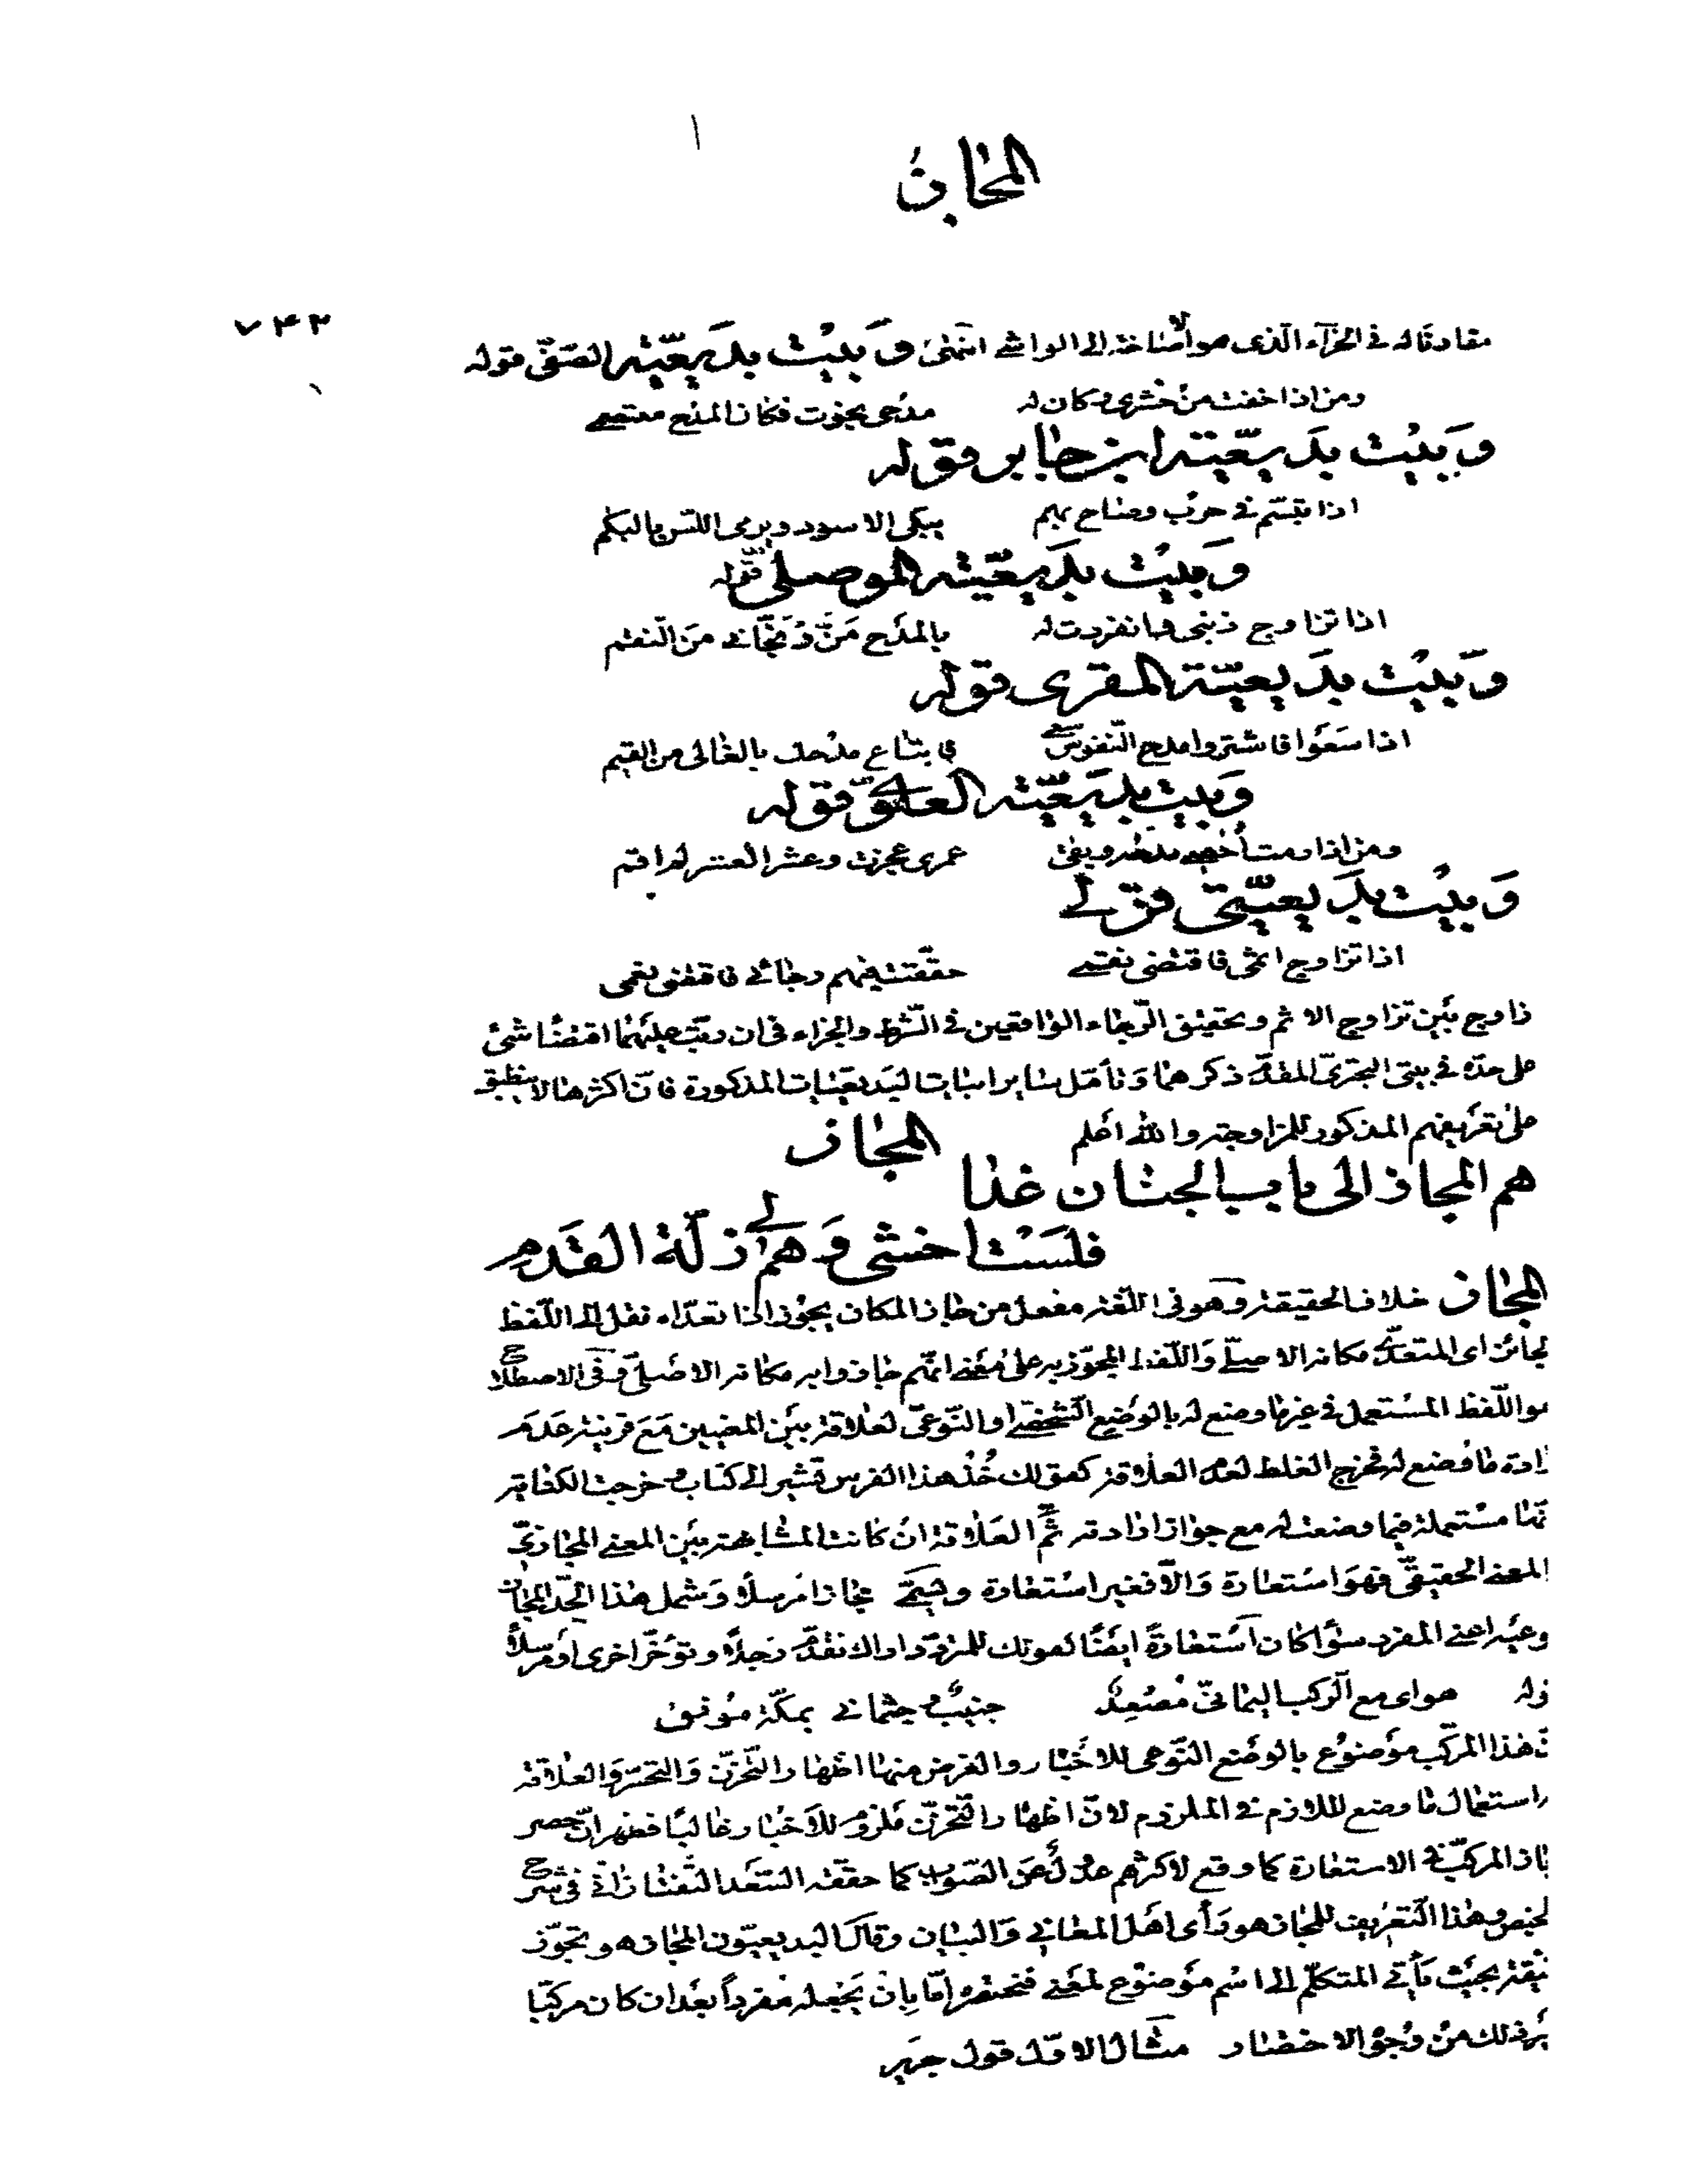 المجاز
٧٤٢
مقادقاله في الجزاء الذي هو اصاخته الى الواشي انتهى وبيت بديعية الصفى قوله
ومن اذا خفت من حشري وكان له مدحي نجوت فكان المدح معتصمي
وبيت بديعية ابن جابر قوله
اذا تبسم في حرب وصاح بهم يبكي الاسود ويرمى اللسن بالبكم
وبيت بديعية الموصلي قوله
اذا تزاوج ذنبى وانفردت له بالمدح من ونجاني من النقم
وبيت بديعية المقرى قوله
اذا سعوا فاشتروا مدح النفوس سعى في بتاع مدحك بالغالى من القيم
وبيت بديعية العلوي قوله
ومن اذا رمت مدحه ويفنى عمرى عجزت وعشر العشر لم اقم
وبيت بديعيتي قولي
اذا تزاوج اثمى فاقتضى نقمي حققت فيهم رجائي فاقتضى نعمى
زاوج بين تزاوج الاثم وتحقيق الرجاء الواقعين في الشرط والجزاء في ان رتب عليهما اقتضا شئ
على حدة في بيتى البحترى المقدم ذكرهما وتأمل سائر ابيات البديعيات المذكورة فان اكثرها لا ينطبق
على تعريفهم المذكور للمزاوجة والله اعلم المجاز
هم المجاز الى باب الجنان غدا
فلست اخشى وهم لي زلة القدم
المجاز خلاف الحقيقة وهو في اللغة مفعل من جاز المكان يجوزه اذا تعداه نقل الى اللفظ
لجائز اى المتعدي مكانه الاصلي واللفظ المجوز به على معنى انهم جازوا به مكانه الاصلي وفي الاصطلاح
هو اللفظ المستعمل في غير ما وضع له بالوضع الشخصي او النوعى لعلاقة بين المعنيين مع قرينة عدم
ارادة ما وضع له فخرج الغلط لعدم العلاقة كقولك خذ هذا الفرس تشير الى كتاب وخرجت الكناية
نها مستعملة فيما وضعت له مع جواز ارادته ثم العلاقة ان كانت المشابهة بين المعنى المجازي
المعنى الحقيقي فهو استعارة والا فغير استعارة ويسمى مجازا مرسلا وشمل هذا الحد المجاز
وعيه اعنى المفرد سواء كان استعارة ايضا كقولك للمتردد اراك تقدم رجلا وتؤخر اخرى او مرسلا
وله هواى مع الركب اليمانى مصعد جنيب وجثماني بمكة موثق
ن هذا المركب موضوع بالوضع النوعى للاخبار والغرض منها اظهار التحزن والتحسر والعلاقة
استعمال ما وضع لللازم في الملزوم لان اظهار التحزن ملزوم للاخبار غالبا فظهر ان حصر
باز المركب في الاستعارة كما وقع لاكثرهم عدول عن الصواب كما حققه السعد التفتازاني في شرح
لخيص وهذا التعريف للمجاز هو رأى اهل المعاني والبيان وقال البديعيون المجاز هو تجوز
نيقة بحيث يأتي المتكلم الى اسم موضوع لمعنى فيختصره اما بان يجعله مفردا بعد ان كان مركبا
ير ذلك من وجوه الاختصار مثال الاول قول جرير